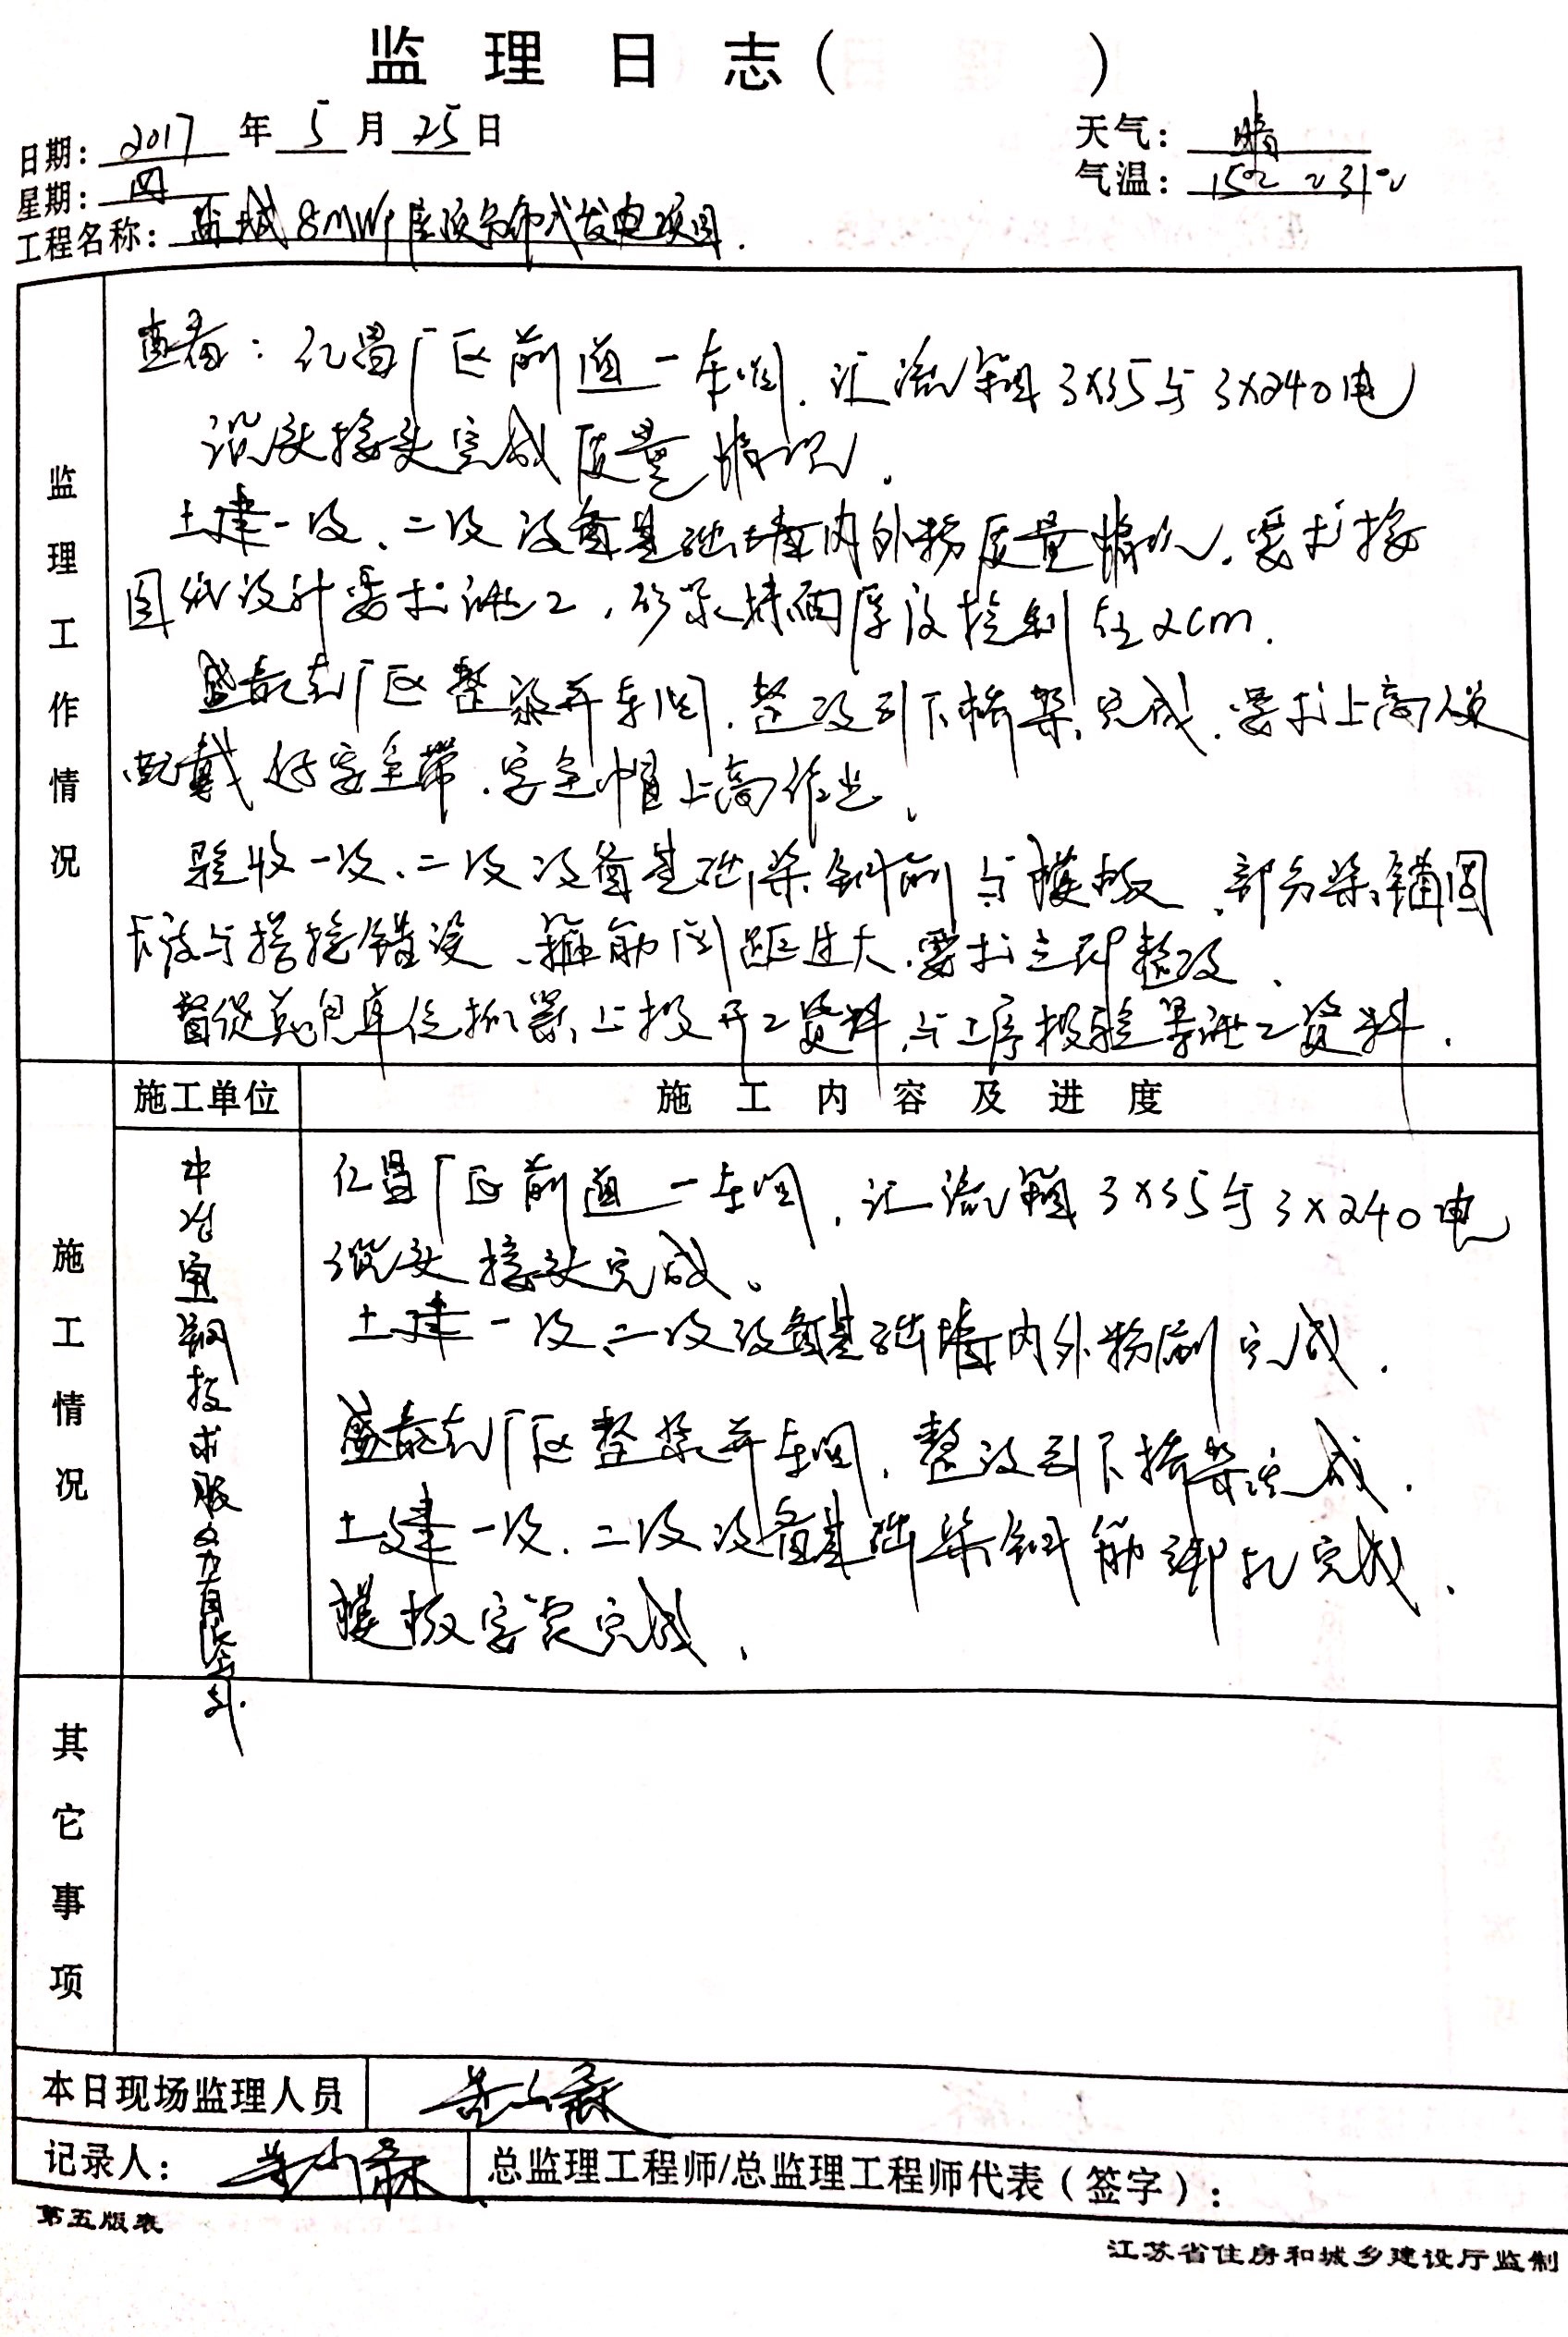 监理日志（ ）
日期：2017年5月25日
天气：晴
星期：四
气温：15℃~31℃
工程名称：盐城8MWp屋顶分布式发电项目.
监理工作情况
查看：仁昌厂区前道一车间，汇流箱3X35与3X240电
缆头接头完成质量情况.
土建一段、二段设备基础墙内外粉质量情况，要求按
图纸设计要求施工，砂浆抹面厚度控制在2cm.
盛泰东厂区整浆并车间，整改引下桥架完成，要求上高人员
配戴好安全带，安全帽上高作业.
验收一段、二段设备基础梁钢筋与模板，部分梁锚固
长度与搭接错误、箍筋间距过大，要求立即整改、
督促总包单位抓紧上报开工资料，与工序报验等施工资料.
施工情况
施工单位
施工内容及进度
中冶宝钢技术服务有限公司.
仁昌厂区前道一车间，汇流箱3X35与3X240电
缆头接头完成。
土建一段、二段设备基础墙内外粉刷完成.
盛泰东厂区整浆并车间，整改引下桥架完成.
土建一段、二段设备基础梁钢筋绑扎完成.
模板安装完成.
其它事项
本日现场监理人员
记录人：
总监理工程师/总监理工程师代表（签字）：
第五版表
江苏省住房和城乡建设厅监制